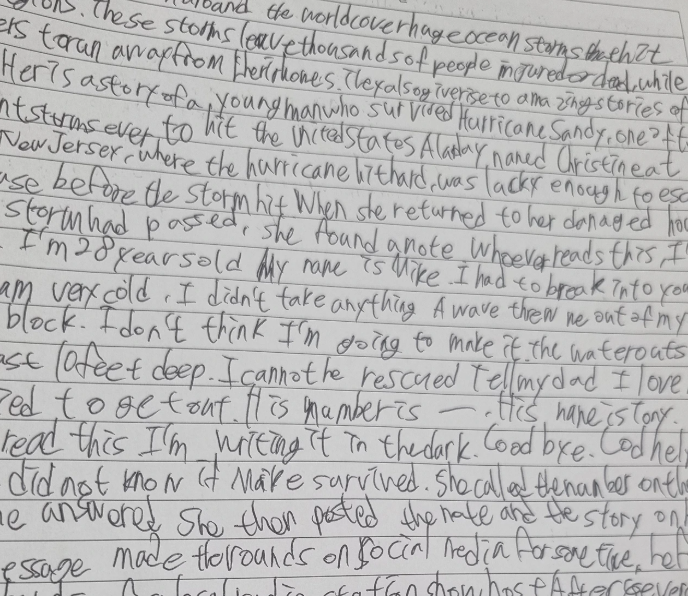 around the world cover huge ocean storms that hit
ers to run away from their homes. These storms leave thousands of people injured or dead, while
They also give rise to amazing stories of
Her is a story of a young man who survived Hurricane Sandy, one of t
nt storms ever to hit the United States A lady named Christine at
New Jersey, where the hurricane hit hard, was lacky enough to esc
use before the storm hit When she returned to her damaged hou
storm had passed, she found a note Whoever reads this, I'
I'm 28 years old My name is Mike. I had to break into you
am very cold. I didn't take anything A wave threw me out of my
block. I don't think I'm going to make it. the water outs
ast 10 feet deep. I cannot be rescued Tell my dad I love
ed to get out. His number is — . His name is Tony.
read this I'm writing it in the dark. Good bye. God hel
did not know if Make survived. She called the number on th
he answered She then posted the note and the story on
essage made the rounds on social media for some time, bef